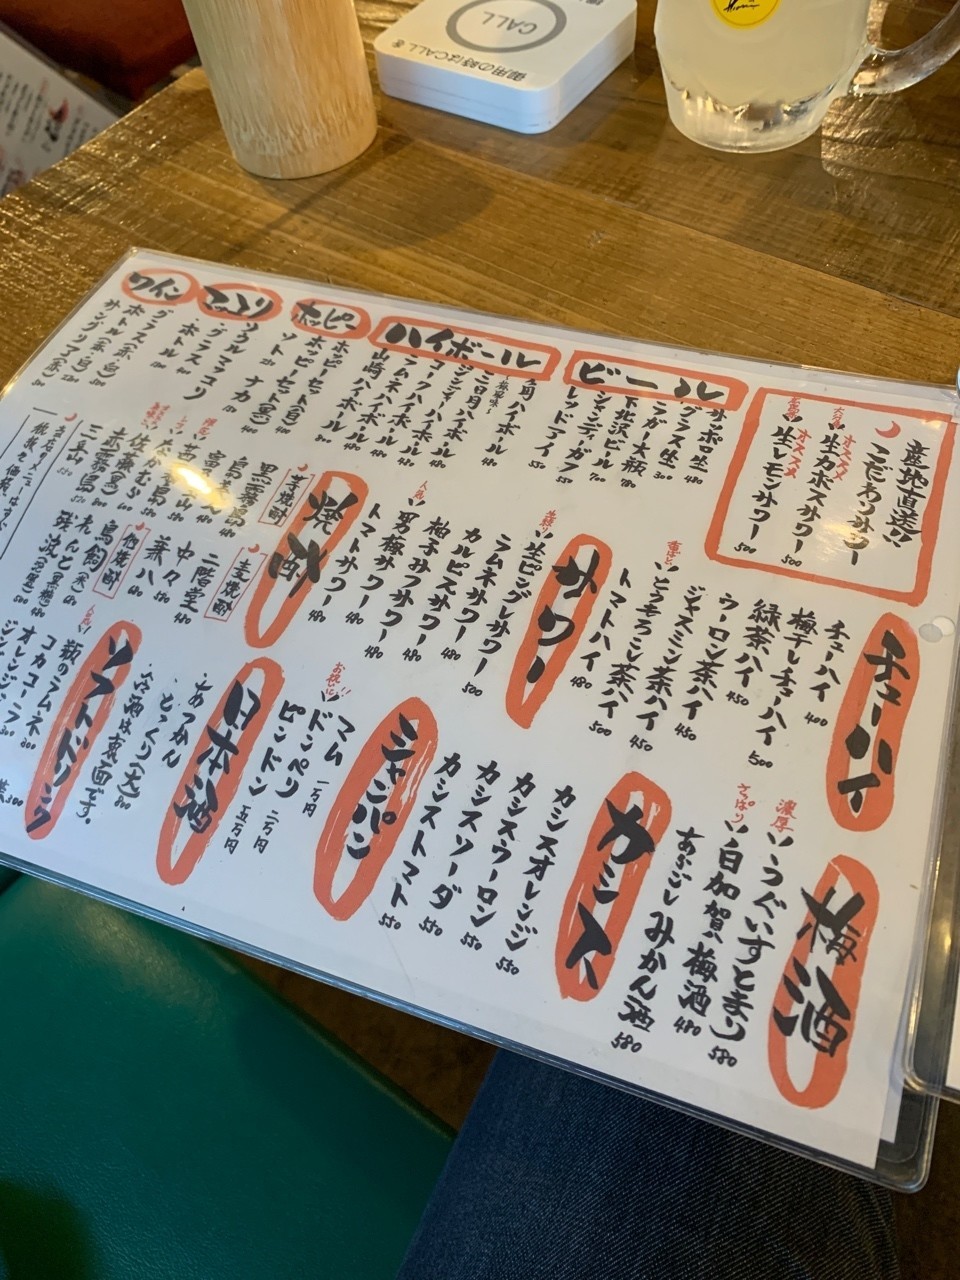 CALL
御用の時はCALLを
産地直送!!
こだわりサワー
大人気
オススメ
生カボスサワー 500
オススメ
生レモンサワー 500
ビール
サッポロ生 480
グラス生 300
ラガー大瓶 780
下北沢ビール 700
シャンディーガフ 550
レッドアイ 550
ハイボール
角ハイボール 480
三日月ハイボール 480
ジンジャーハイボール 480
コークハイボール 480
ラムネハイボール 480
山崎ハイボール 800
ホッピー
ホッピーセット(白) 400
ホッピーセット(黒) 400
ソト
ナカ
マッコリ
ソウルマッコリ
・グラス
・ボトル
ワイン
グラス(赤・白)
ボトル(赤・白)
サングリア(赤)
チューハイ
チューハイ 400
梅干しチューハイ 500
緑茶ハイ 450
ウーロン茶ハイ 450
ジャスミン茶ハイ 450
とうもろこし茶ハイ 500
トマトハイ 480
サワー
生ピングレサワー 500
ラムネサワー 480
カルピスサワー 480
柚子みつサワー 480
人気!
男梅サワー 480
トマトサワー 480
焼酎
芋焼酎
黒霧島
佐藤(黒)
赤霧島
三岳
麦焼酎
二階堂 480
中々
兼八 680
他焼酎
鳥飼(米)
れんと(黒糖)
残波(泡盛)
梅酒
濃厚
うぐいすとまり 580
さっぱり
白加賀梅酒 480
あらごしみかん酒 580
カシス
カシスオレンジ 550
カシスウーロン 550
カシスソーダ 550
カシストマト 550
シャンパン
マム 一万円
お祝いに!!
ドンペリ 二万円
ピンドン 五万円
日本酒
・あつかん
・とっくり(大) 800
・冷酒は裏面です。
ソフトドリンク
人気!
瓶のラムネ 300
コカコーラ 300
オレンジ
ジンジャーエール